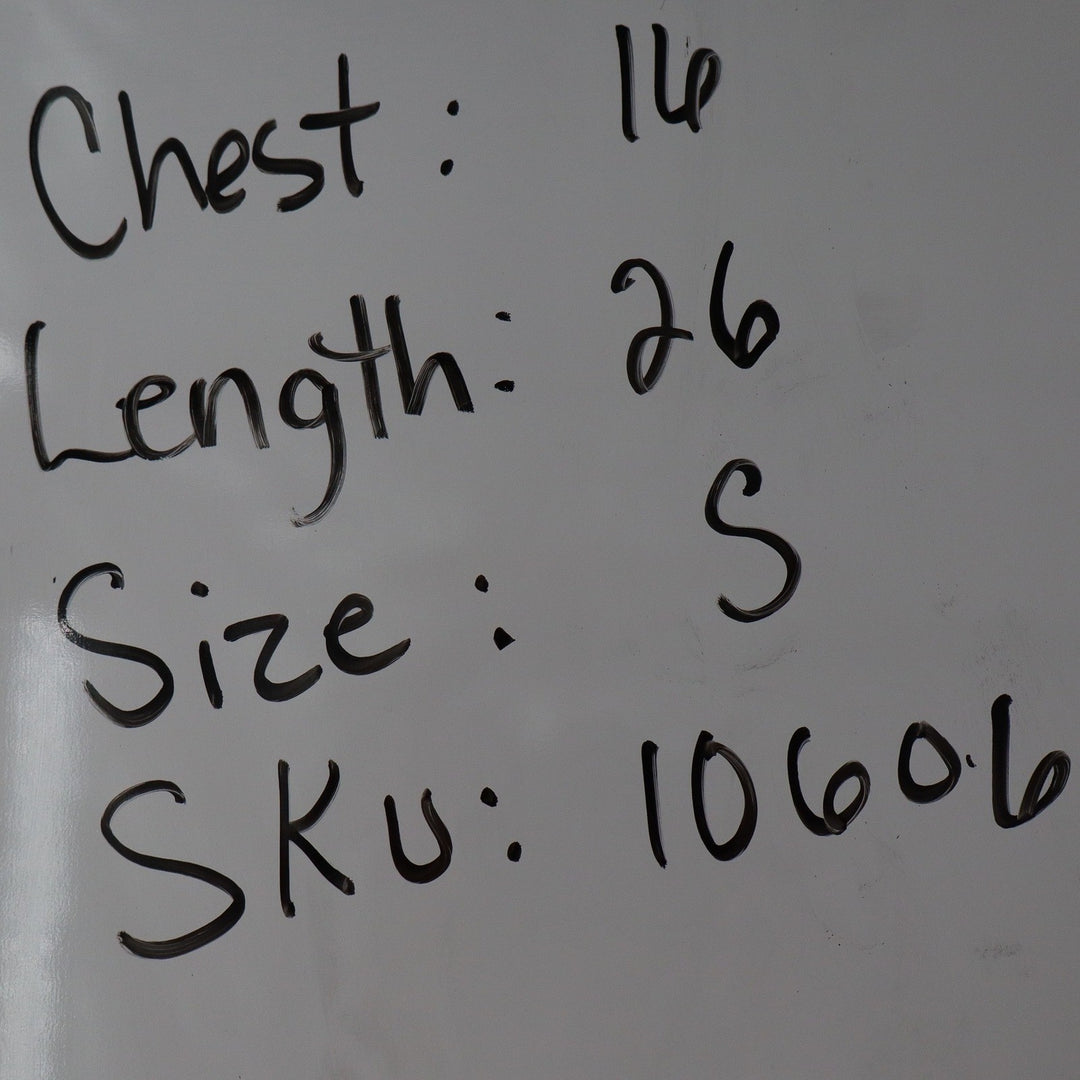 Chest: 16
Length: 26
Size: S
SKU: 1060.6